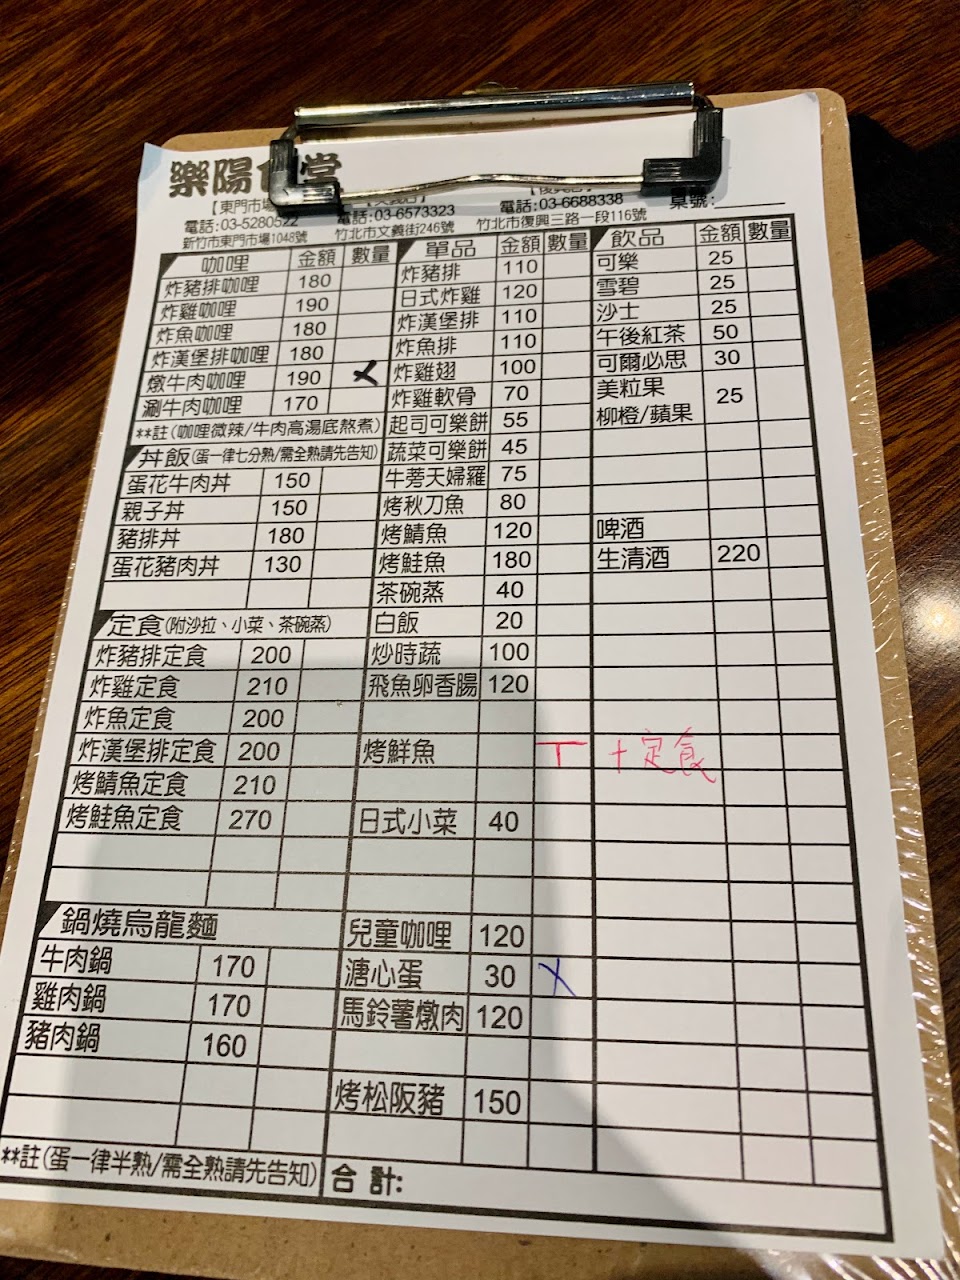 樂陽食堂
【東門市場
電話:03-5280522
新竹市東門市場1048號
電話:03-6573323
竹北市文義街246號
【復興店】
電話:03-6688338
竹北市復興三路一段116號
桌號:
咖哩 金額 數量
炸豬排咖哩 180
炸雞咖哩 190
炸魚咖哩 180
炸漢堡排咖哩 180
燉牛肉咖哩 190 X
涮牛肉咖哩 170
**註(咖哩微辣/牛肉高湯底熬煮)
丼飯(蛋一律七分熟/需全熟請先告知)
蛋花牛肉丼 150
親子丼 150
豬排丼 180
蛋花豬肉丼 130
定食(附沙拉、小菜、茶碗蒸)
炸豬排定食 200
炸雞定食 210
炸魚定食 200
炸漢堡排定食 200
烤鯖魚定食 210
烤鮭魚定食 270
鍋燒烏龍麵
牛肉鍋 170
雞肉鍋 170
豬肉鍋 160
**註(蛋一律半熟/需全熟請先告知)
單品 金額 數量
炸豬排 110
日式炸雞 120
炸漢堡排 110
炸魚排 110
炸雞翅 100
炸雞軟骨 70
起司可樂餅 55
蔬菜可樂餅 45
牛蒡天婦羅 75
烤秋刀魚 80
烤鯖魚 120
烤鮭魚 180
茶碗蒸 40
白飯 20
炒時蔬 100
飛魚卵香腸 120
烤鮮魚 T +定食
日式小菜 40
兒童咖哩 120
溏心蛋 30 X
馬鈴薯燉肉 120
烤松阪豬 150
合計:
飲品 金額 數量
可樂 25
雪碧 25
沙士 25
午後紅茶 50
可爾必思 30
美粒果
柳橙/蘋果 25
啤酒
生清酒 220